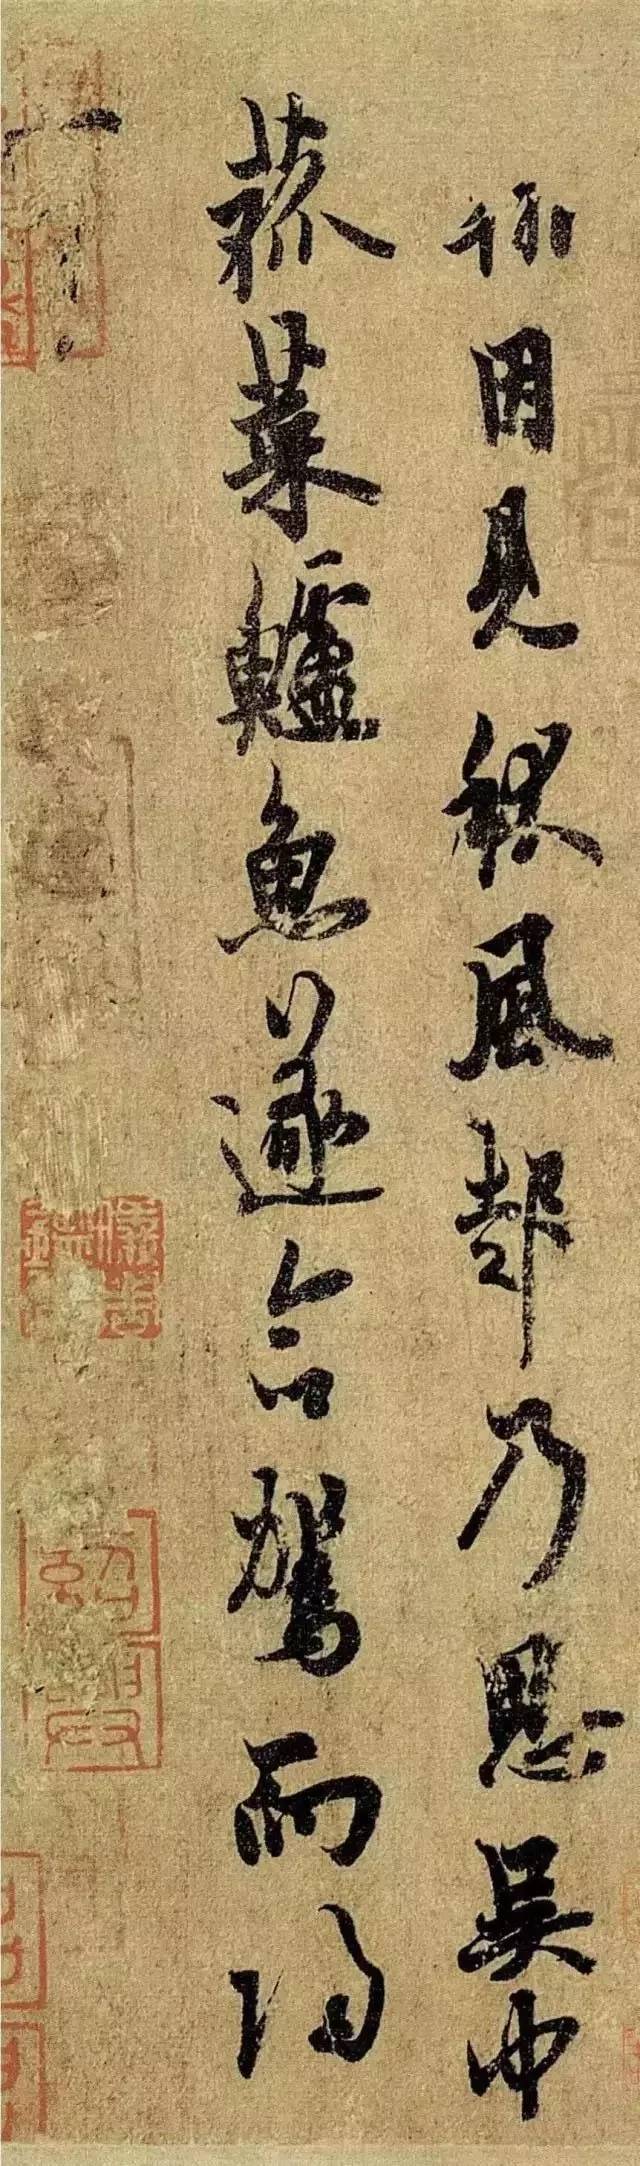 因見秋風起乃思吳中
菰菜鱸魚遂命駕而歸